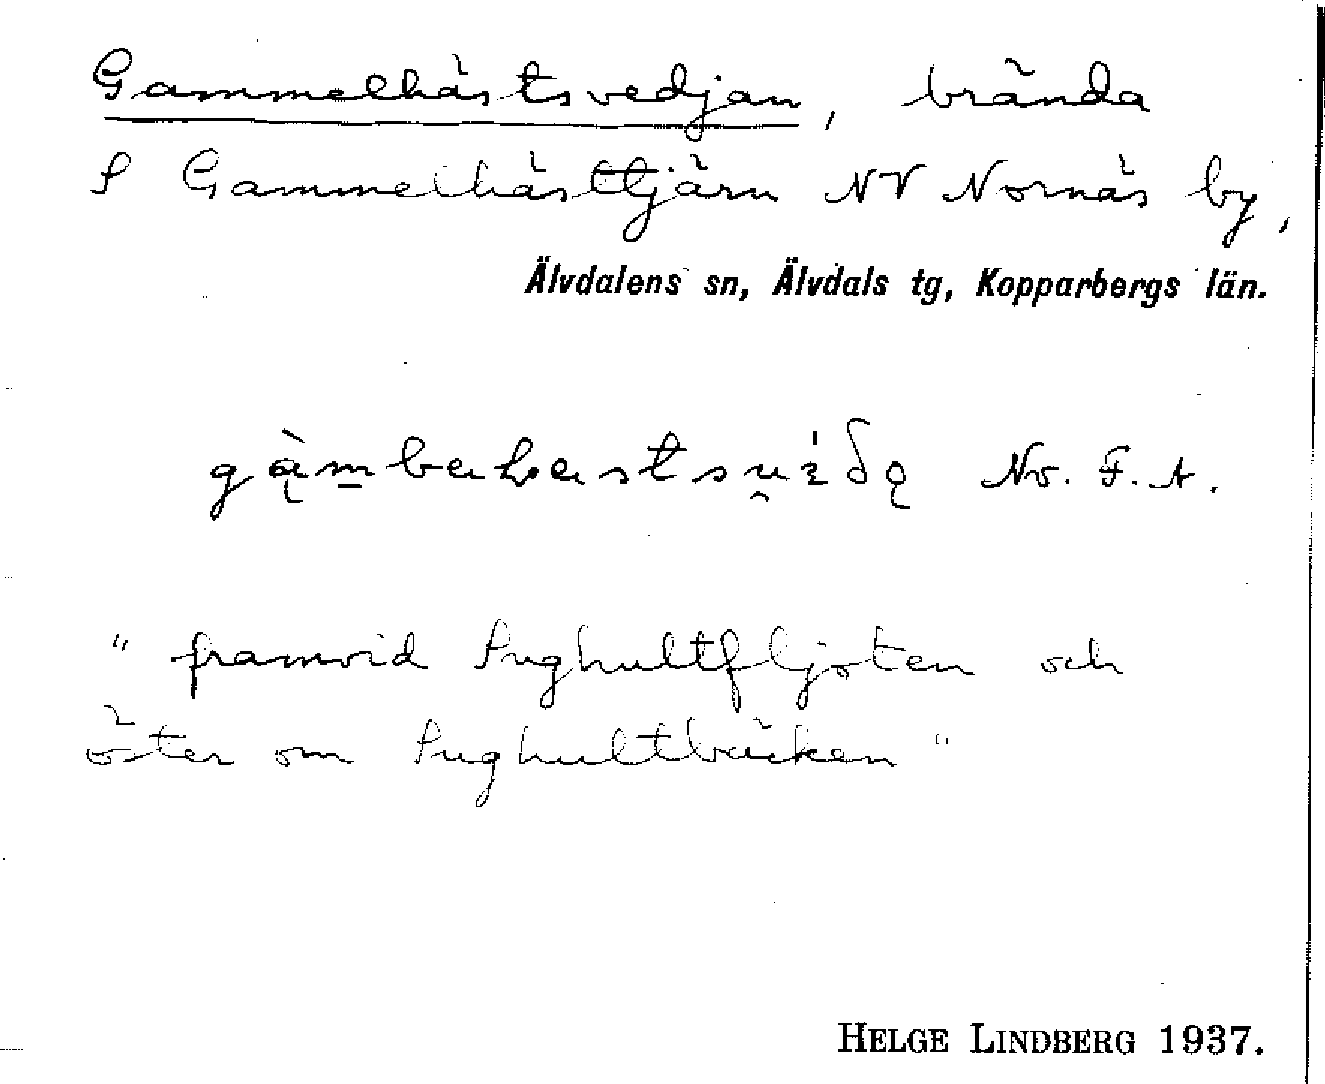 Gammelhästsvedjan, brända
S Gammelhästtjärn NV Nornäs by,
Älvdalens sn, Älvdals tg, Kopparbergs län.
Nr. F. A.
" framvid Sughultfljoten och
öster om Sughultbäcken "
HELGE LINDBERG 1937.